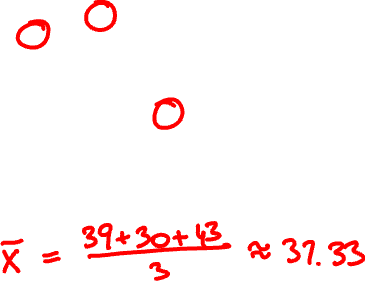 x̄ = (39+30+43)/3 ≈ 37.33